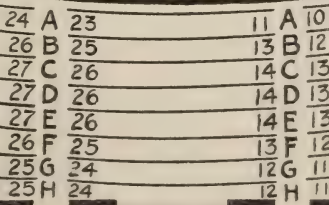 24 A 23 11 A 10
26 B 25 13 B 12
27 C 26 14 C 13
27 D 26 14 D 13
27 E 26 14 E 13
26 F 25 13 F 12
25 G 24 12 G 11
25 H 24 12 H 11